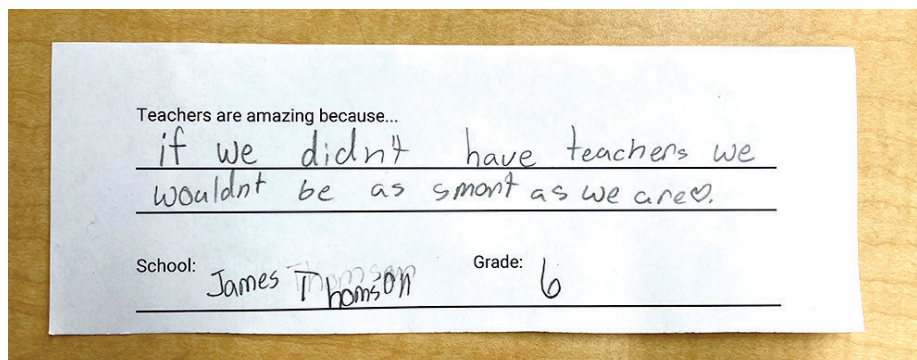 Teachers are amazing because...
if we didn't have teachers we
wouldnt be as smart as we are♡.
School: James Thomson Grade: 6